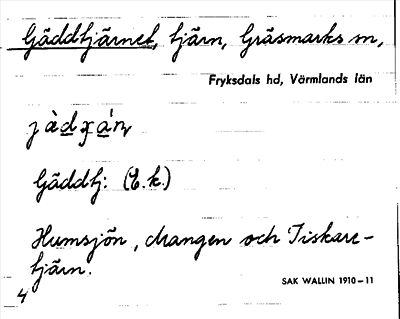 Gäddtjärnet, tjärn, Gräsmarks sn,
Fryksdals hd, Värmlands län
Gäddtj: (E.k.)
Humsjön, drangen och Tiskare-
tjärn.
SAK WALLIN 1910-11
4